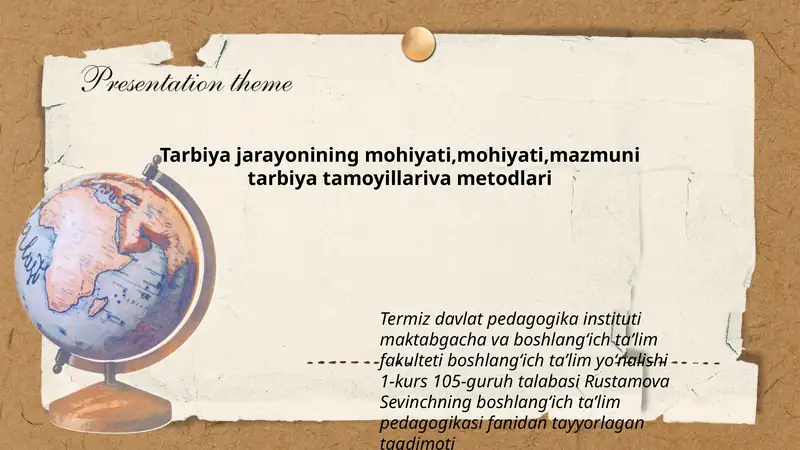 Presentation theme
Tarbiya jarayonining mohiyati,mohiyati,mazmuni
tarbiya tamoyillariva metodlari
Termiz davlat pedagogika instituti
maktabgacha va boshlang‘ich ta’lim
fakulteti boshlang‘ich ta’lim yo‘nalishi
1-kurs 105-guruh talabasi Rustamova
Sevinchning boshlang‘ich ta’lim
pedagogikasi fanidan tayyorlagan
taqdimoti